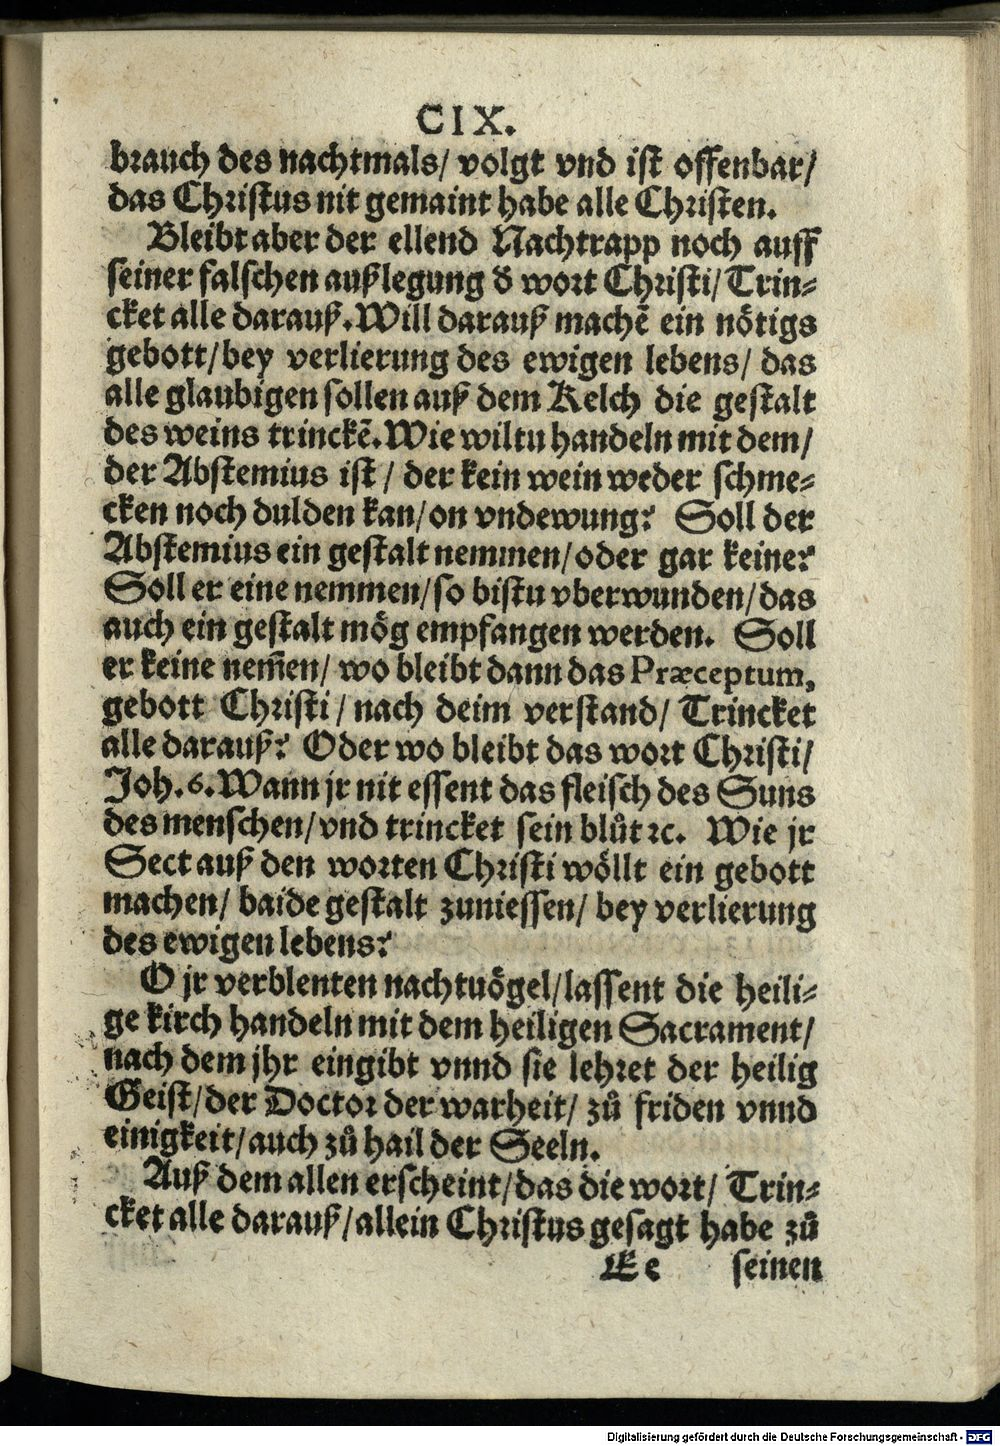 CIX.
brauch des nachtmals/ volgt vnd ist offenbar/
das Christus nit gemaint habe alle Christen.
Bleibt aber der ellend Nachtrapp noch auff
seiner falschen außlegung d̕ wort Christi/ Trin⸗
cket alle darauß. Will darauß machẽ ein nötigs
gebott/ bey verlierung des ewigen lebens/ das
alle glaubigen sollen auß dem Kelch die gestalt
des weins trinckẽ. Wie wiltu handeln mit dem/
der Abstemius ist/ der kein wein weder schme⸗
cken noch dulden kan/ on vndewung? Soll der
Abstemius ein gestalt nemmen/ oder gar keine?
Soll er eine nemmen/ so bistu vberwunden/ das
auch ein gestalt mög empfangen werden. Soll
er keine nem̃en/ wo bleibt dann das Præceptum,
gebott Christi/ nach deim verstand/ Trincket
alle darauß? Oder wo bleibt das wort Christi/
Joh. 6. Wann jr nit essent das fleisch des Suns
des menschen/ vnd trincket sein blůt ꝛc. Wie jr
Sect auß den worten Christi wöllt ein gebott
machen/ baide gestalt zuniessen/ bey verlierung
des ewigen lebens?
O jr verblenten nachtuögel/ lassent die heili⸗
ge kirch handeln mit dem heiligen Sacrament/
nach dem jhr eingibt vnnd sie lehret der heilig
Geist/ der Doctor der warheit/ zů friden vnnd
einigkeit/ auch zů hail der Seeln.
Auß dem allen erscheint/ das die wort/ Trin⸗
cket alle darauß/ allein Christus gesagt habe zů
Ee seinen
Digitalisierung gefördert durch die Deutsche Forschungsgemeinschaft - DFG